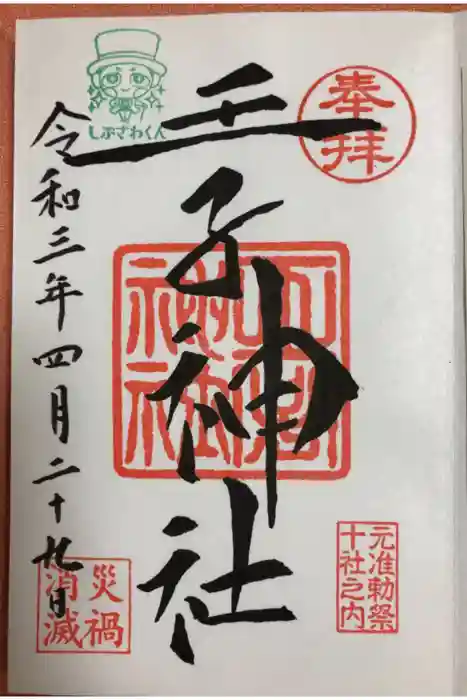 奉拝
王子神社
王子神社
元准勅祭
十社之内
しぶさわくん
令和三年四月二十九日
災禍
消滅